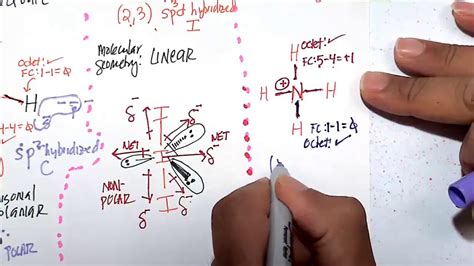 (2,3) sp³d hybridized
I
Molecular
Geometry: LINEAR
Octet: ✓
FC: 1-1=0
H
S
P
5-4=0
sp² hybridized
C
planar
POLAR
δ⁻
δ⁻
I
NET
I
NET
δ⁻
NON-
POLAR
δ⁻
I
δ⁻
δ⁻
Octet: ✓
FC: 5-4=+1
H
+
H-N-H
H
FC: 1-1=0
Octet: ✓
(